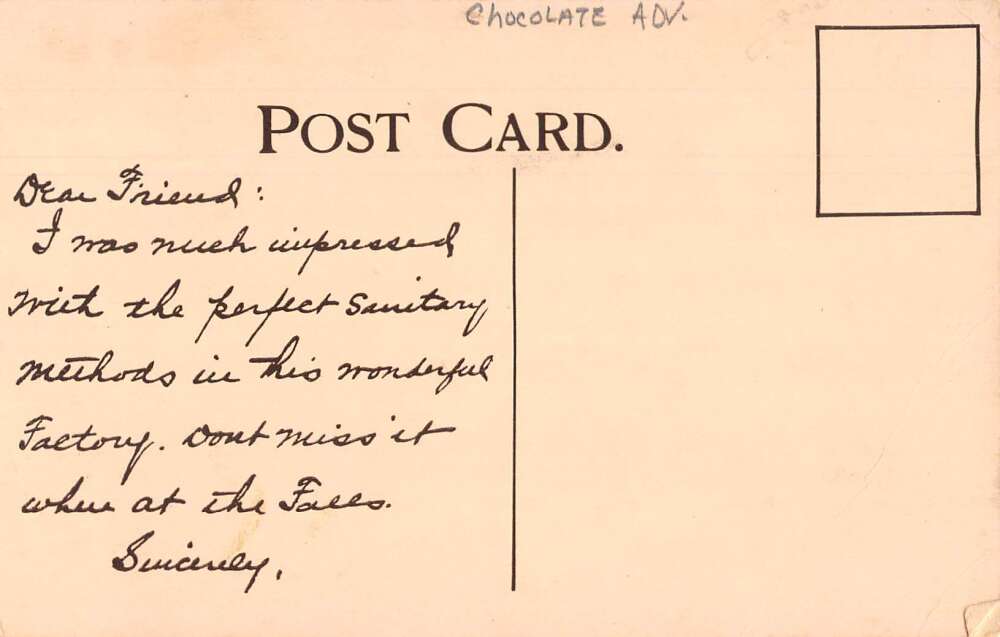 CHOCOLATE ADV.
POST CARD.
Dear Friend:
I was much impressed
with the perfect sanitary
methods in this wonderful
Factory. Dont miss it
when at the Falls.
Sincerely,